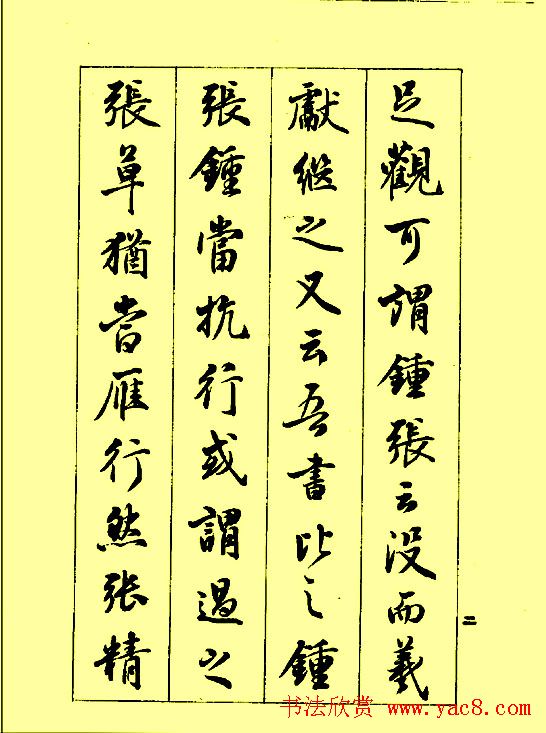 足觀可謂鍾張云没而羲
獻繼之又云吾書比之鍾
張鍾當抗行或謂過之
張草猶當雁行然张精
二
书法欣赏 www.yac8.com